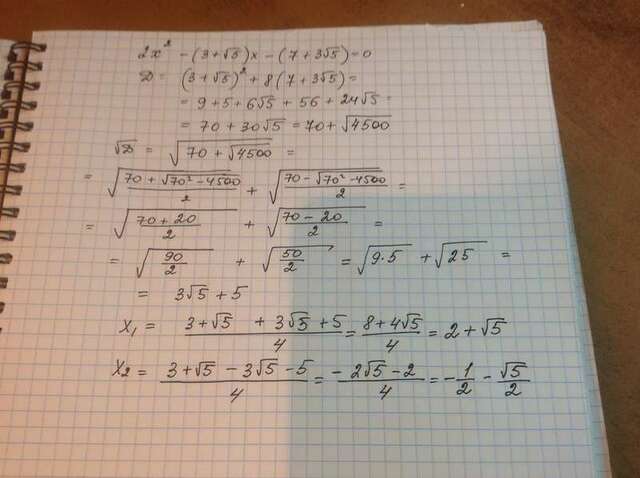 2x² - (3+√5)x - (7+3√5) = 0
D = (3+√5)² + 8(7+3√5) =
= 9+5+6√5 + 56 + 24√5 =
= 70 + 30√5 = 70 + √4500
√D = √(70 + √4500) =
= √((70 + √(70² - 4500))/2) + √((70 - √(70² - 4500))/2) =
= √((70+20)/2) + √((70-20)/2) =
= √(90/2) + √(50/2) = √(9·5) + √25 =
= 3√5 + 5
X₁ = (3+√5 + 3√5 + 5)/4 = (8+4√5)/4 = 2 + √5
X₂ = (3+√5 - 3√5 - 5)/4 = (-2√5 - 2)/4 = -1/2 - √5/2